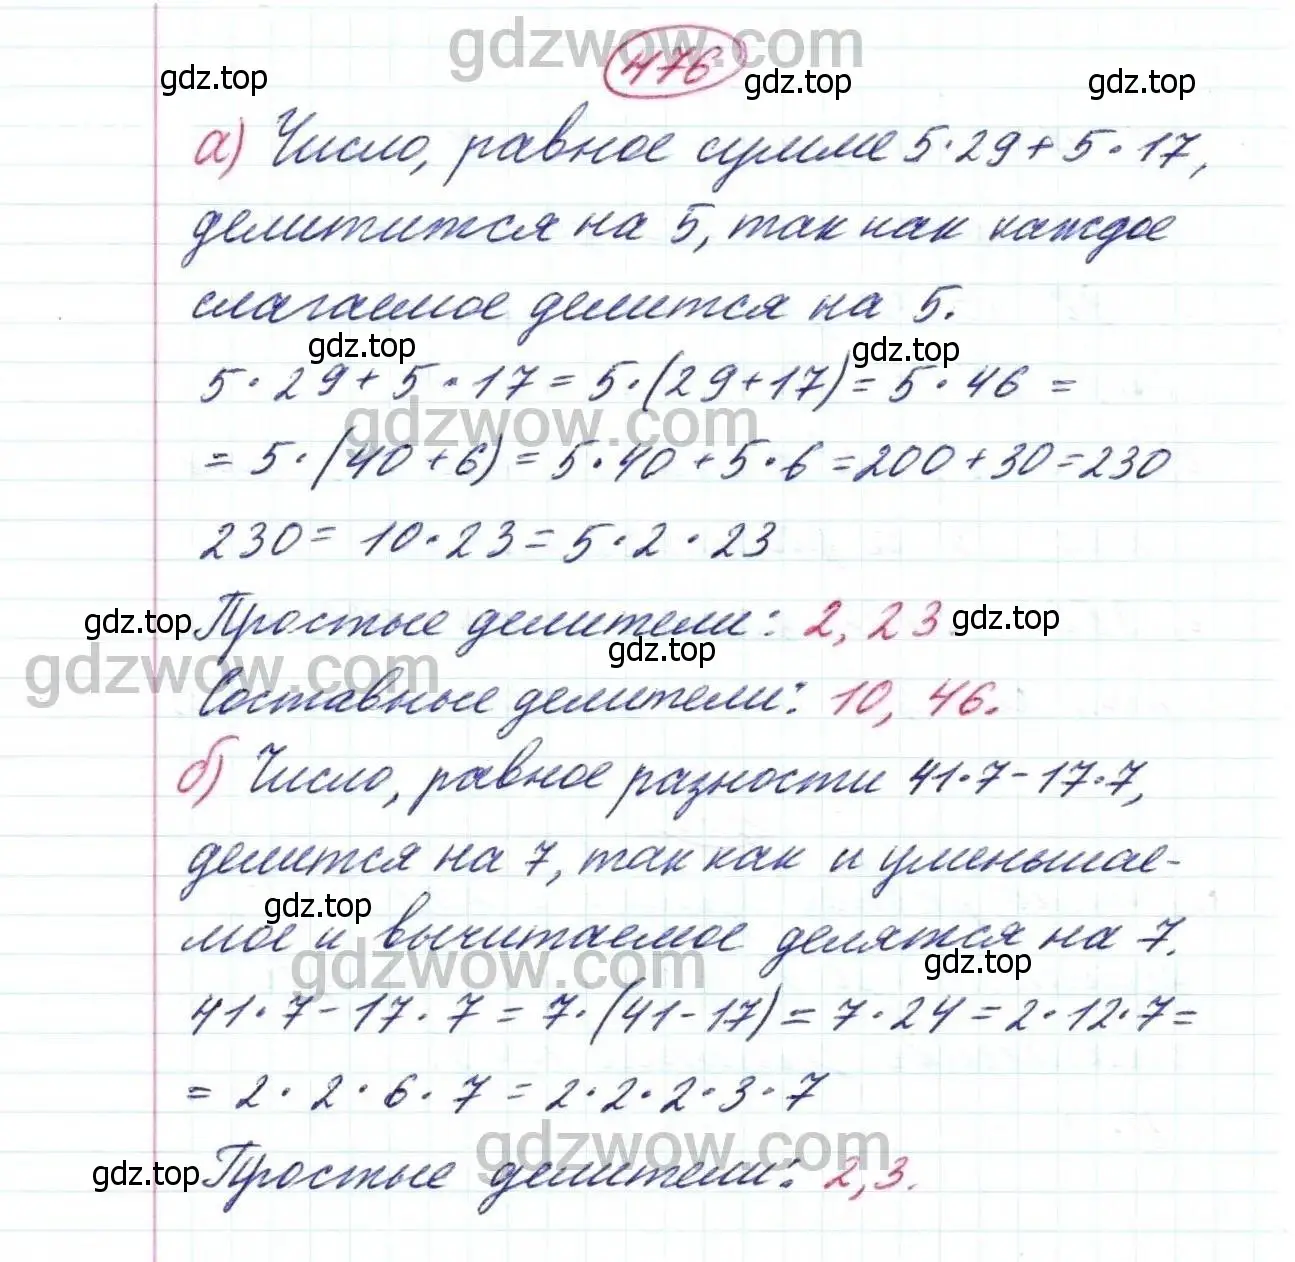 gdzwow.com
476
gdz.top gdz.top gdz.top
а) Число, равное сумме 5·29+5·17,
делитится на 5, так как каждое
слагаемое делится на 5.
gdz.top gdz.top
5·29+5·17=5·(29+17)=5·46=
gdzwow.com
=5·(40+6)=5·40+5·6=200+30=230
230=10·23=5·2·23
gdz.top Простые делители: 2, 23 gdz.top
gdz.top
gdzwow.com
Составные делители: 10, 46.
б) Число, равное разности 41·7-17·7,
делится на 7, так как и уменьшае-
gdz.top
мое и вычитаемое делятся на 7.
gdzwow.com gdz.top
41·7-17·7=7·(41-17)=7·24=2·12·7=
=2·2·6·7=2·2·2·3·7
gdzwow.com
gdz.top Простые делители: 2,3.